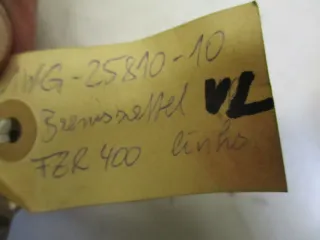 1WG-25810-10
Bremssattel VL
FZR 400 links